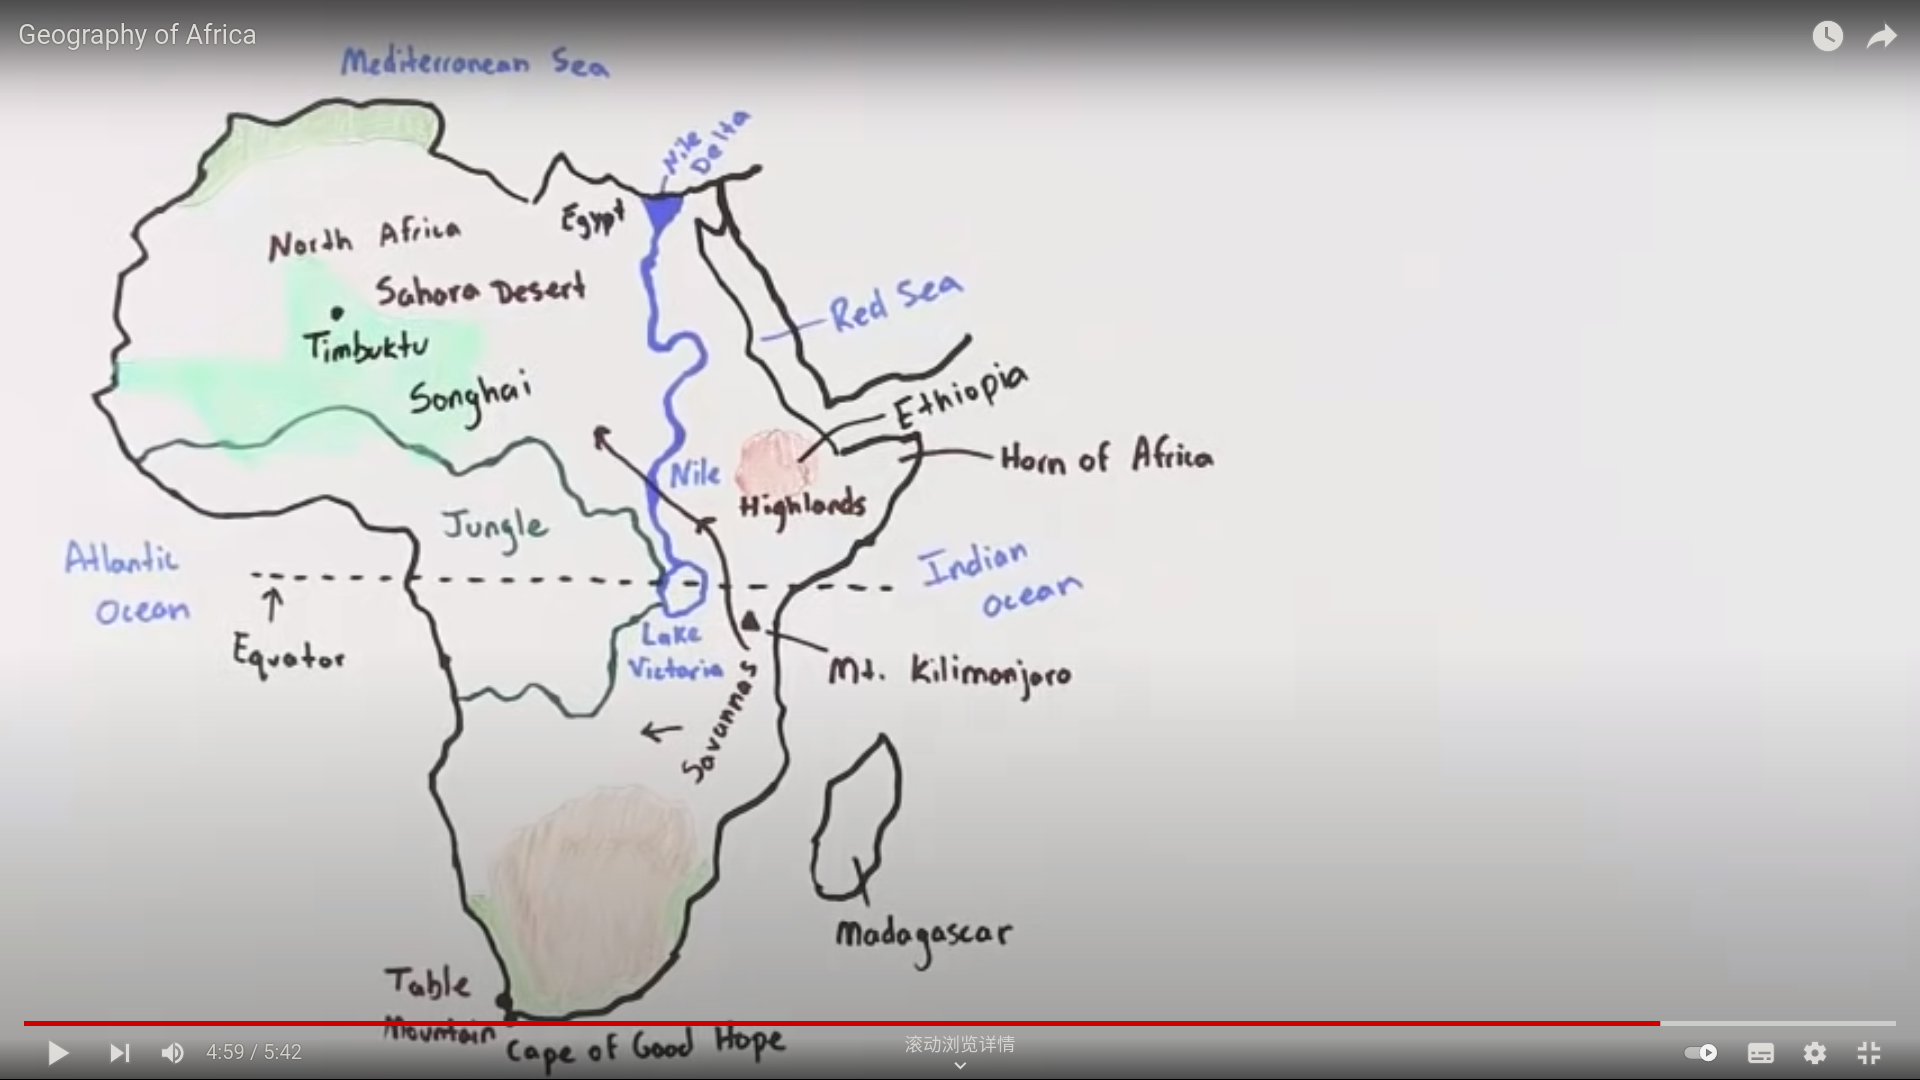 Geography of Africa
Mediterranean Sea
Nile
Delta
Egypt
North Africa
Sahara Desert
Red Sea
Timbuktu
Songhai
Ethiopia
Horn of Africa
Nile
Highlands
Jungle
Atlantic
Ocean
Indian
Ocean
Equator
Lake
Victoria
Mt. Kilimanjaro
Savannas
Madagascar
Table
Mountain
Cape of Good Hope
4:59 / 5:42
滚动浏览详情